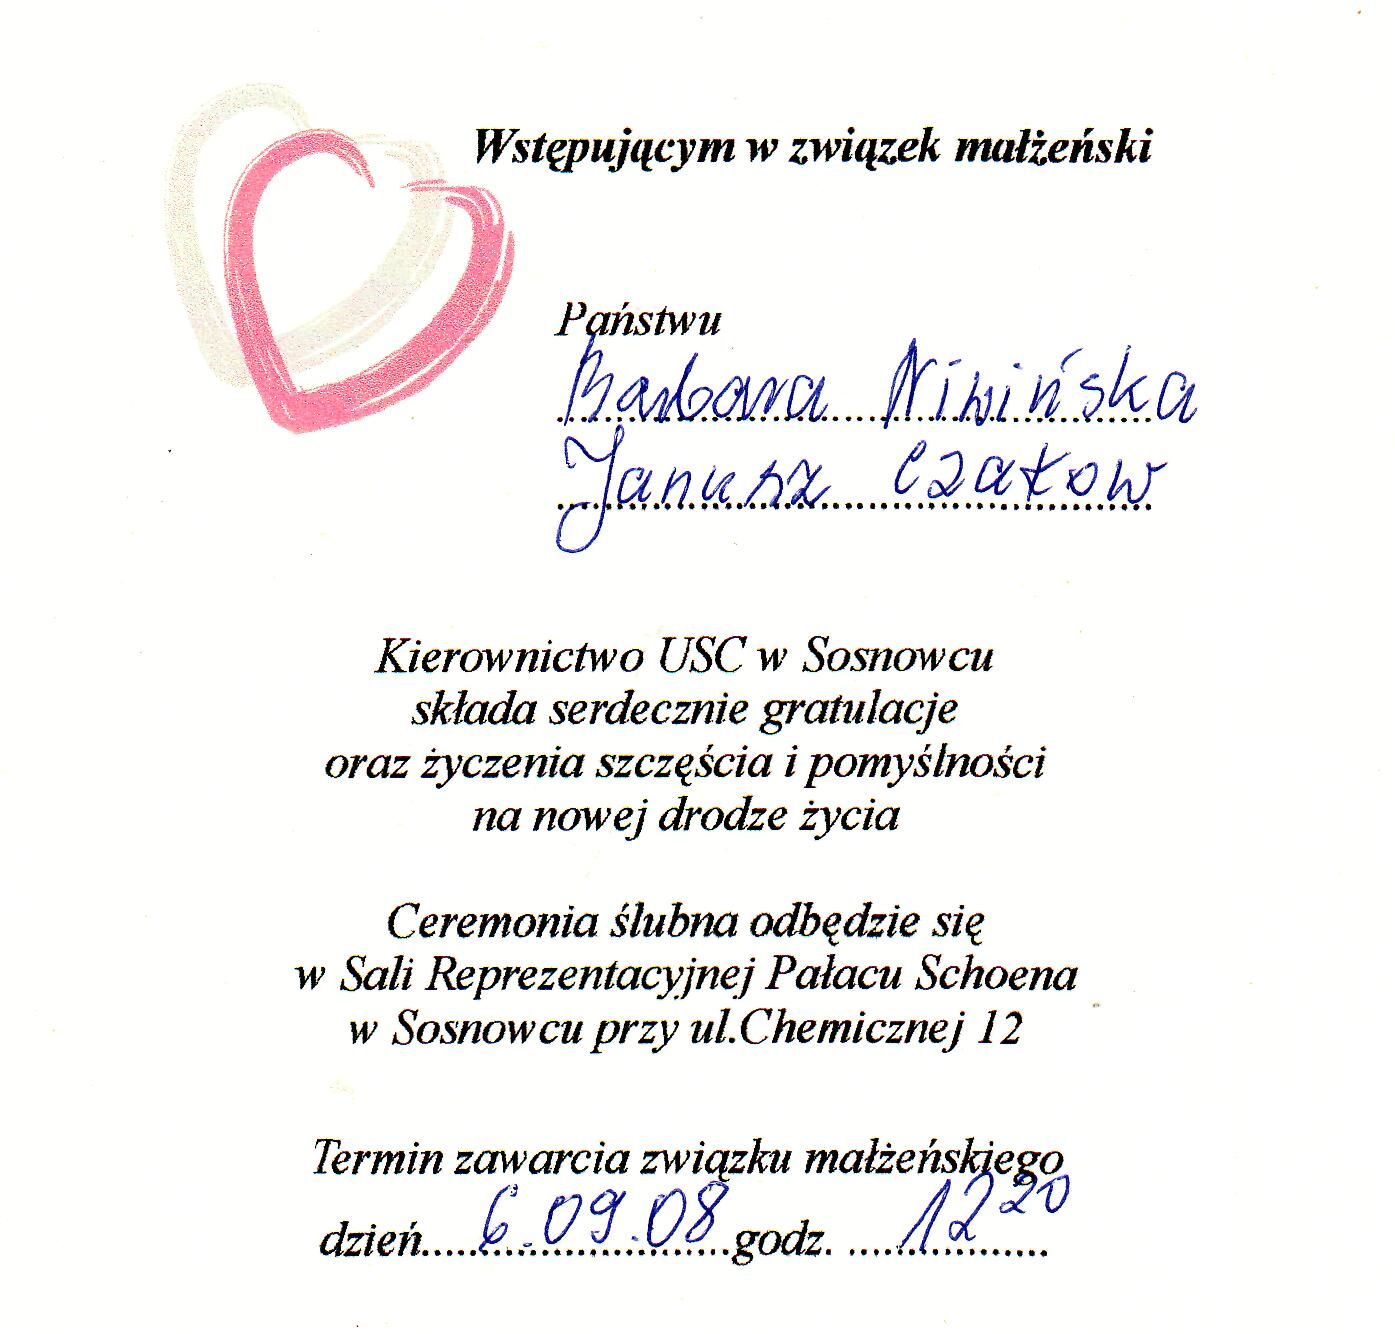 Wstępującym w związek małżeński
Państwu
Barbara Niwińska
Janusz Czałow
Kierownictwo USC w Sosnowcu
składa serdecznie gratulacje
oraz życzenia szczęścia i pomyślności
na nowej drodze życia
Ceremonia ślubna odbędzie się
w Sali Reprezentacyjnej Pałacu Schoena
w Sosnowcu przy ul.Chemicznej 12
Termin zawarcia związku małżeńskiego
dzień.....6.09.08.....godz. .....12²⁰.....